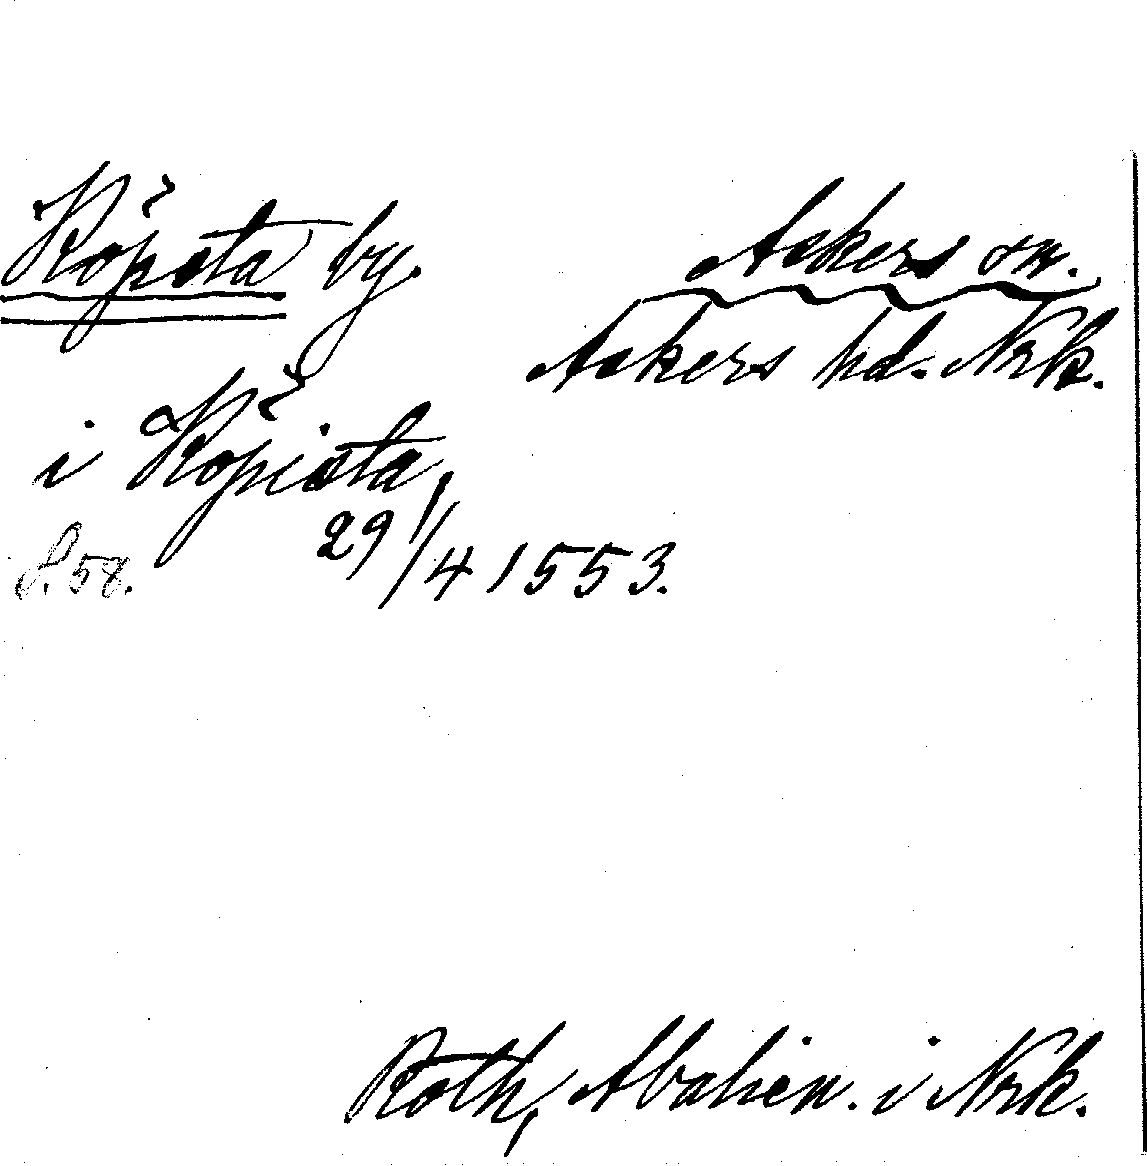 Köpsta by. Askers sn.
Askers hd. Nrk.
i Köpista,
S. 58. 29/4 1553.
Roth, Abalien. i Nrk.